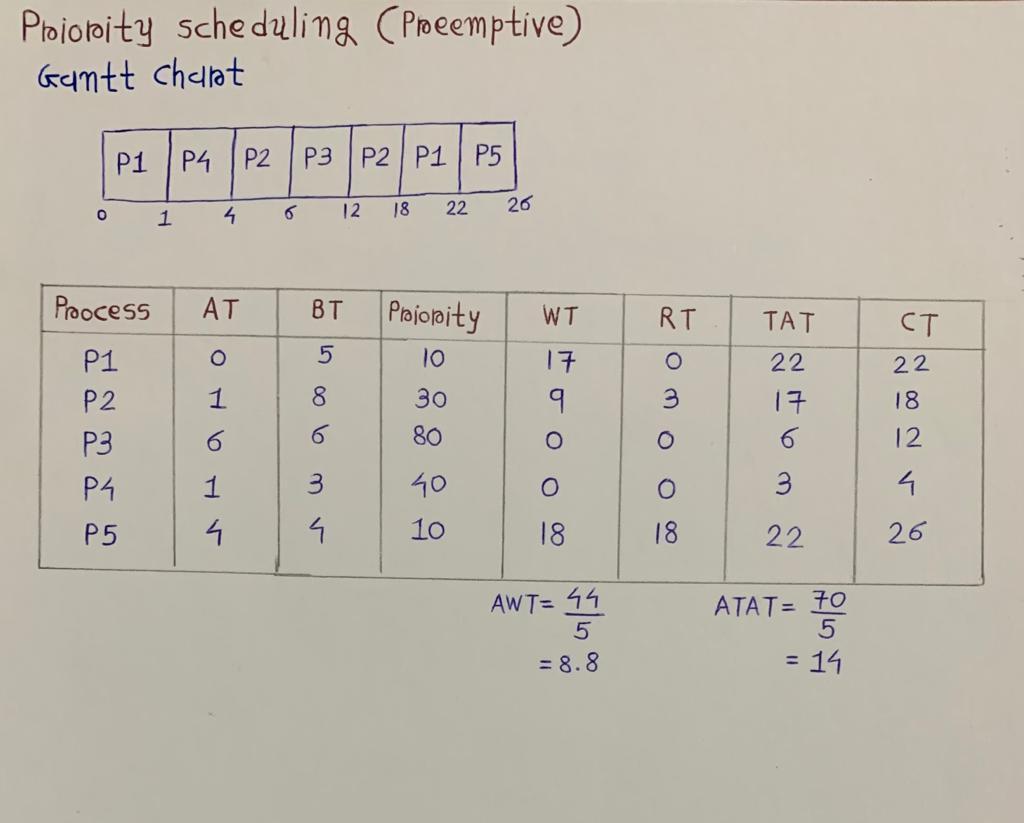 Priority scheduling (Preemptive)
Gantt chart
P1 P4 P2 P3 P2 P1 P5
0 1 4 6 12 18 22 26
Process AT BT Priority WT RT TAT CT
P1 0 5 10 17 0 22 22
P2 1 8 30 9 3 17 18
P3 6 6 80 0 0 6 12
P4 1 3 40 0 0 3 4
P5 4 4 10 18 18 22 26
AWT= 44/5 ATAT= 70/5
=8.8 = 14